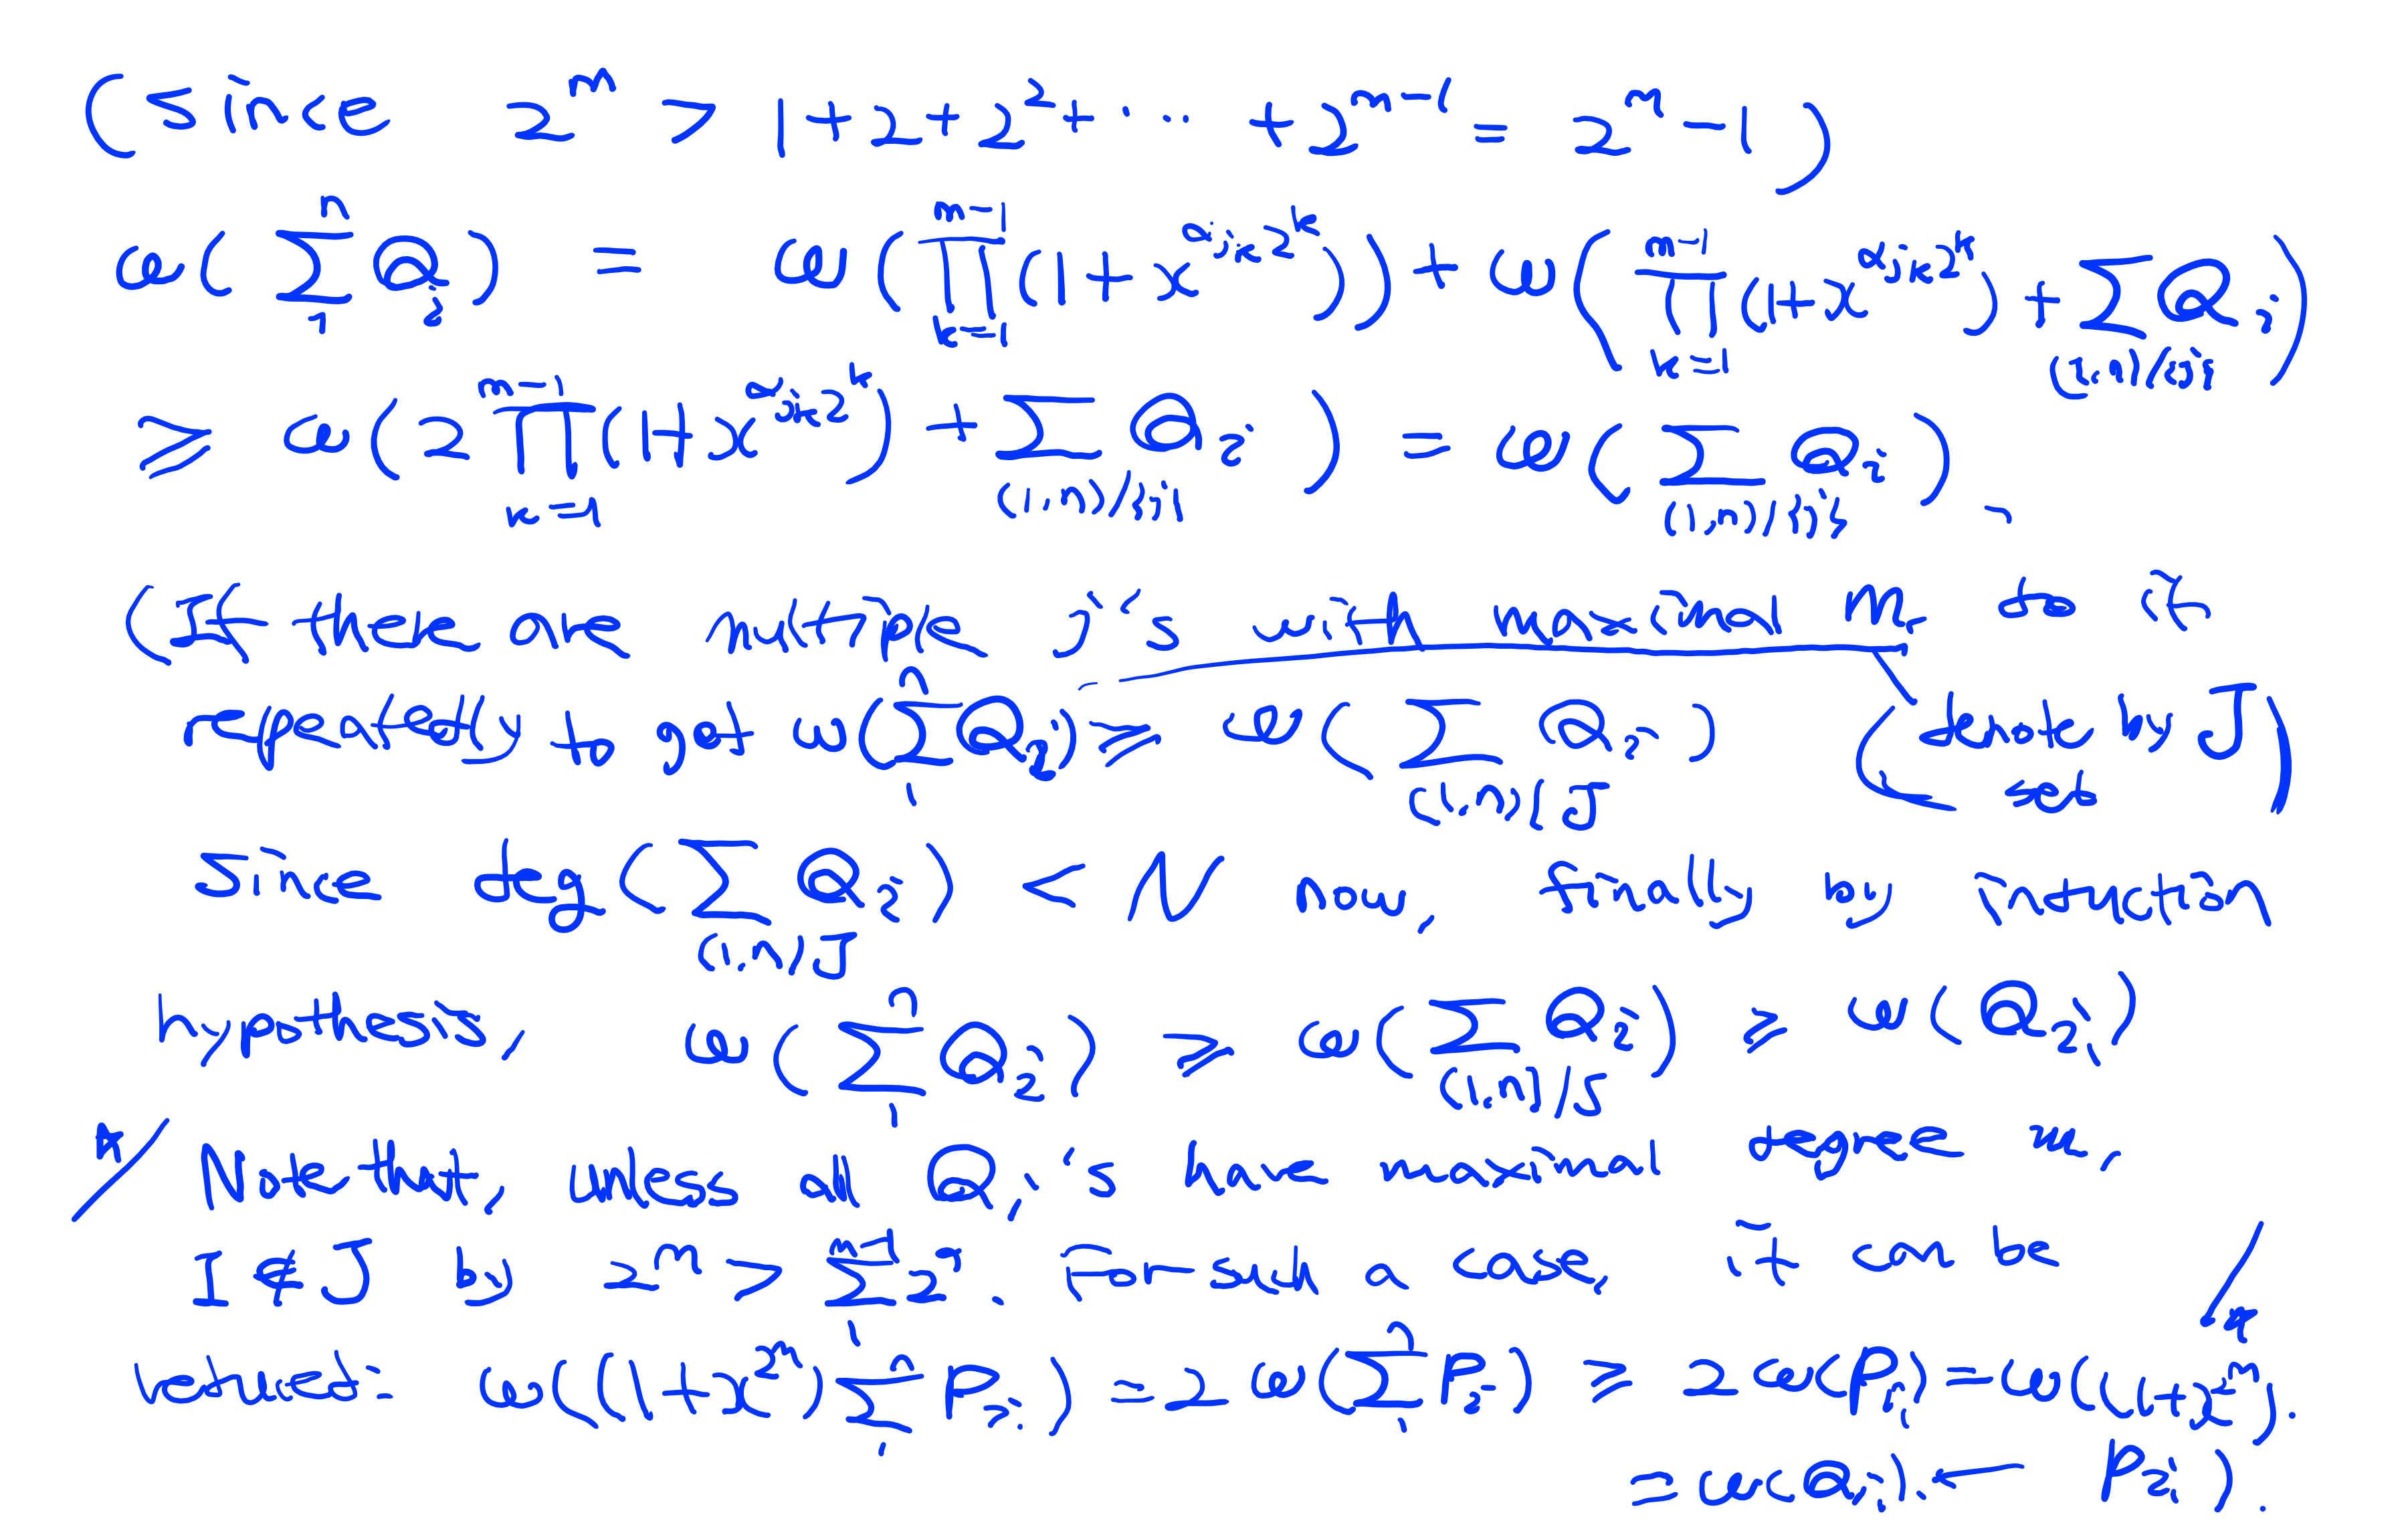 (Since 2^m > 1+2+2^2+ ··· +2^{m-1} = 2^m -1)
ω(∑_1^n Q_i) = ω(∏_{k=1}^{m-1}(1+x^{α_{jk}2^k})) + ω(∏_{k=1}^{m-1}(1+x^{α_{jk}2^k}) + ∑_{(1,n)/{j}} Q_i)
≥ ω(2∏_{k=1}^{m-1}(1+x^{α_{jk}2^k}) + ∑_{(1,n)/{j}} Q_i) = ω(∑_{(1,n)/{j}} Q_i).
(If there are multiple j's with maximal m, do it
repeatedly to get ω(∑_1^n Q_i) ≥ ω(∑_{(1,n)/J} Q_i) (denote by J set)
Since deg(∑_{(1,n)/J} Q_i) < N now, finally by induction
hypothesis, ω(∑_1^n Q_i) ≥ ω(∑_{(1,n)/J} Q_i) ≥ ω(Q_{i_1})
* Note that, unless all Q_i's have maximal degree m,
1 ∉ J by 2^m > ∑_1^{m-1} 2^i. For such a case, it can be
reduced: ω((1+x^{2^m})∑_1^n P_i) = 2ω(∑_1^n P_i) ≥ 2ω(P_{i_1}) = ω((1+x^{2^m}).
= ω(Q_{i_1}) ← P_{i_1}).